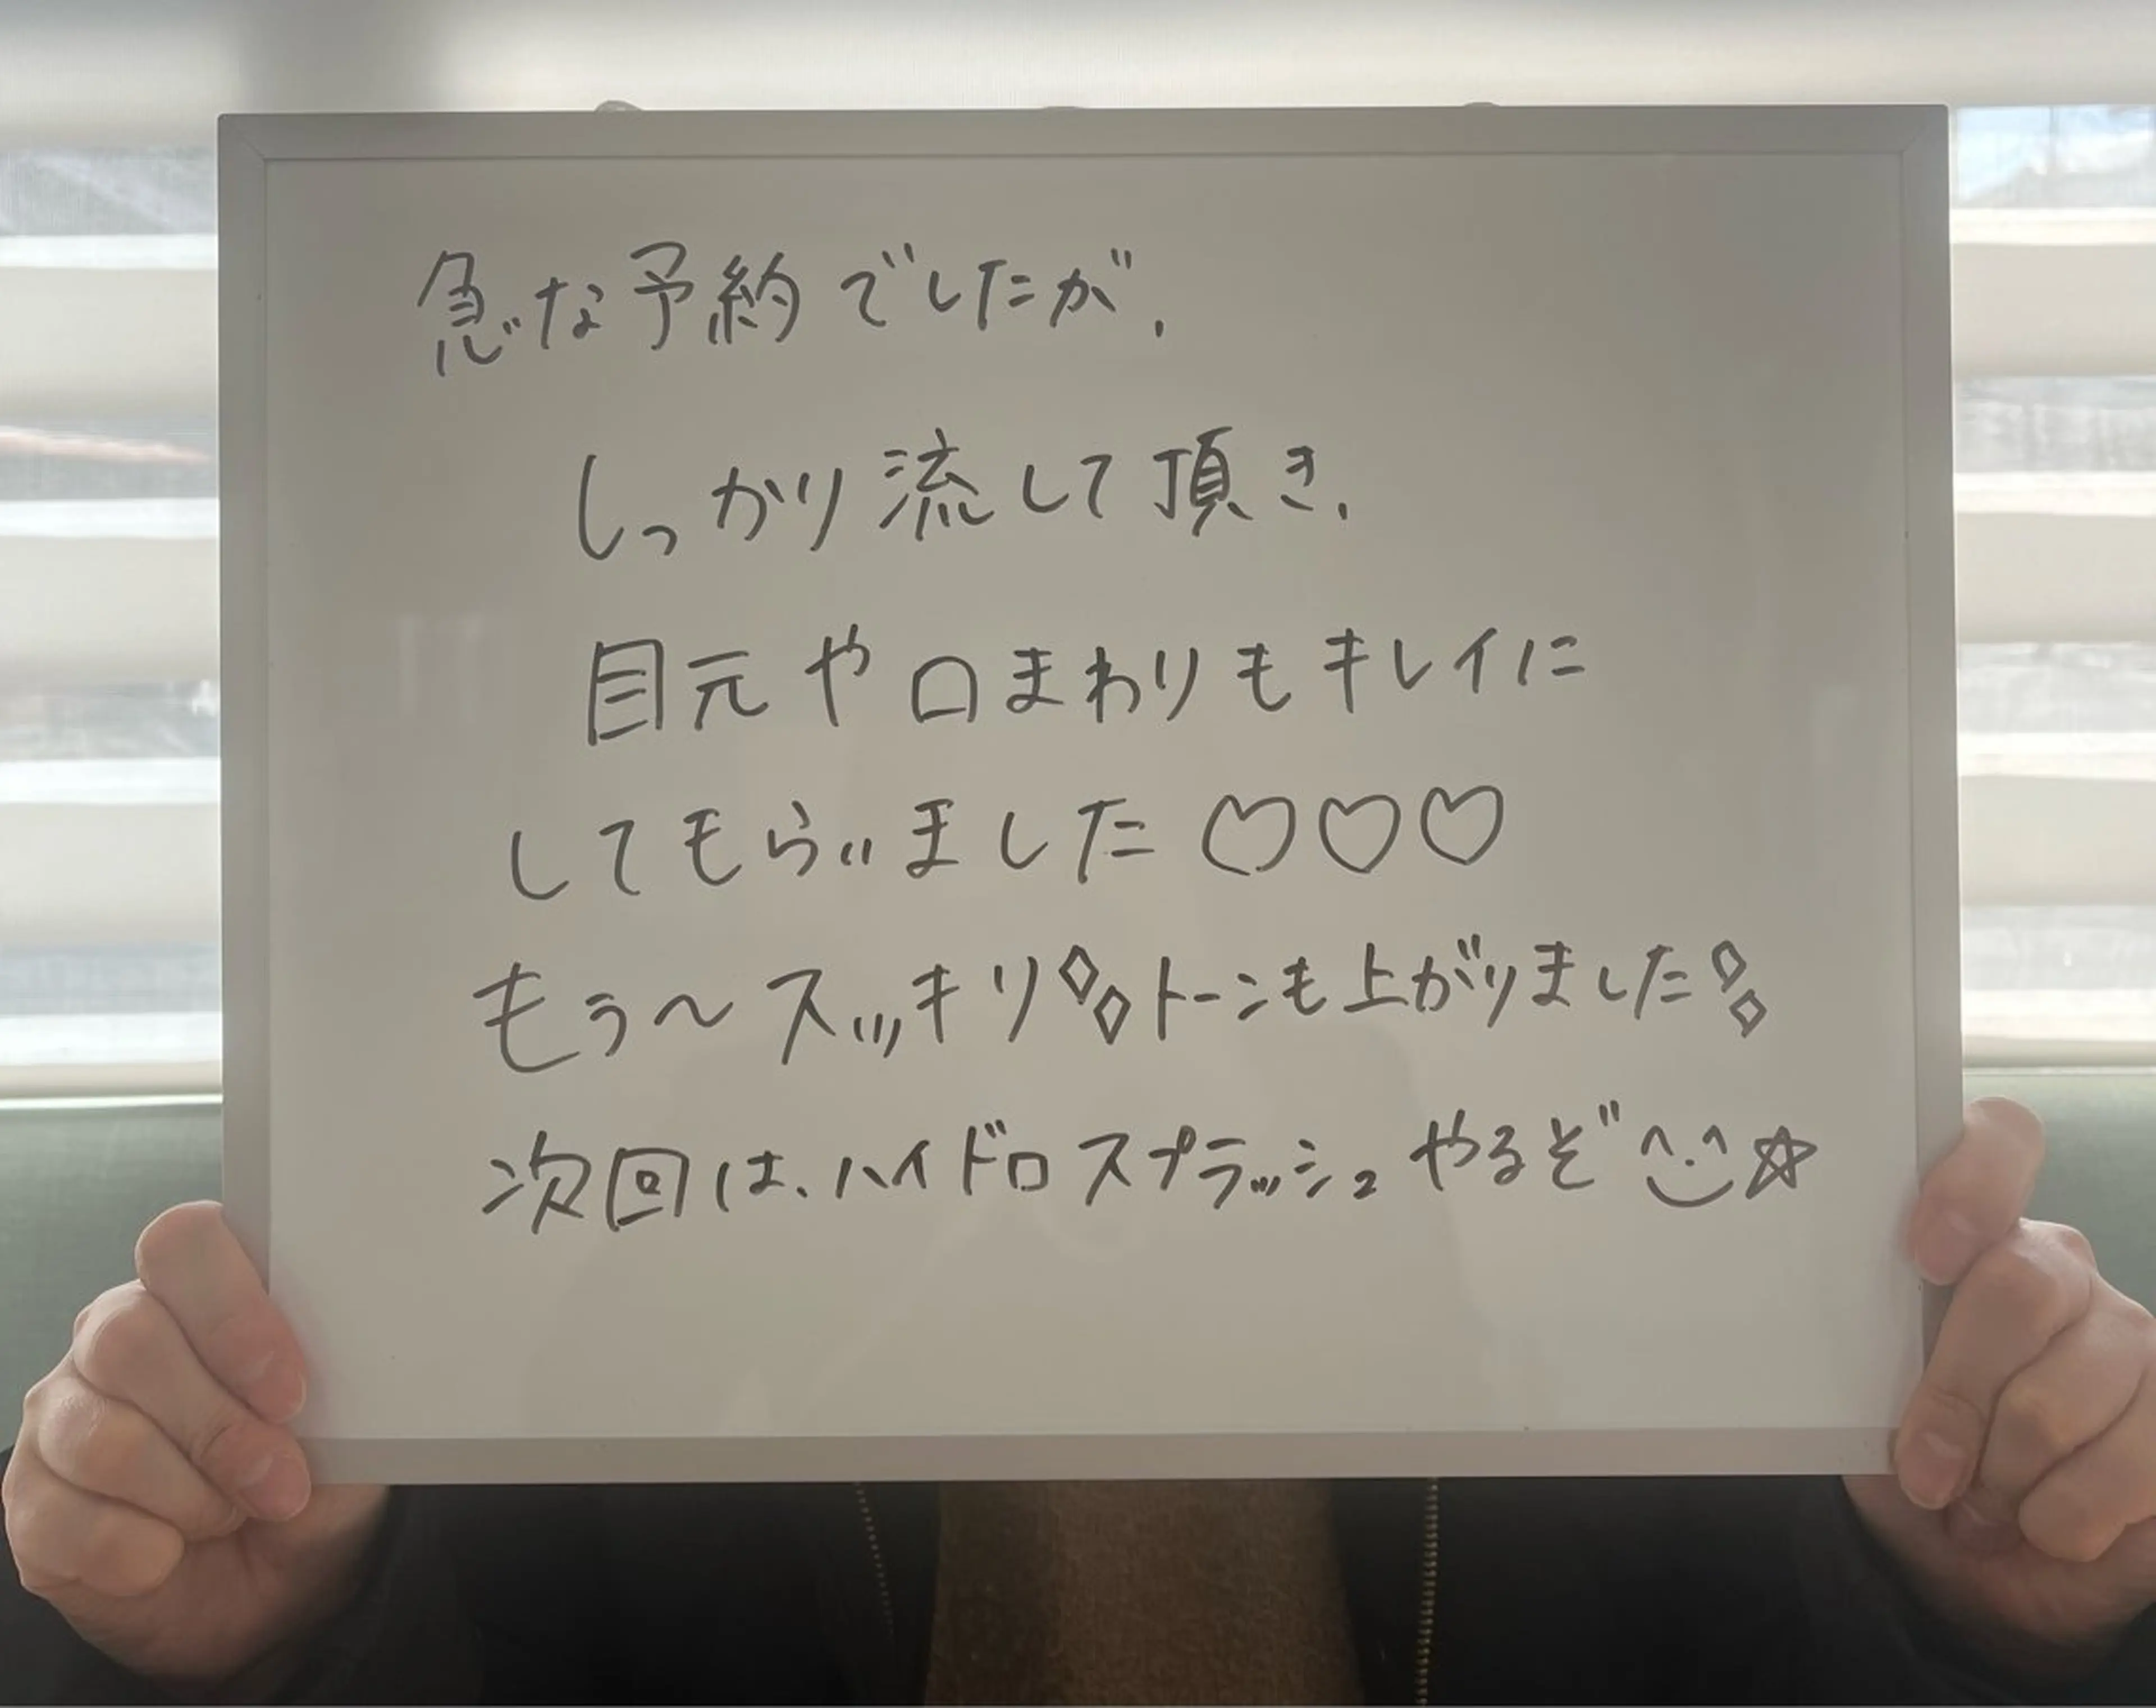 急な予約でしたが、
しっかり流して頂き、
目元や口まわりもキレイに
してもらいました♡♡♡
もう〜スッキリ◇◇トーンも上がりました◇◇
次回は、ハイドロスプラッシュやるぞ^.^☆